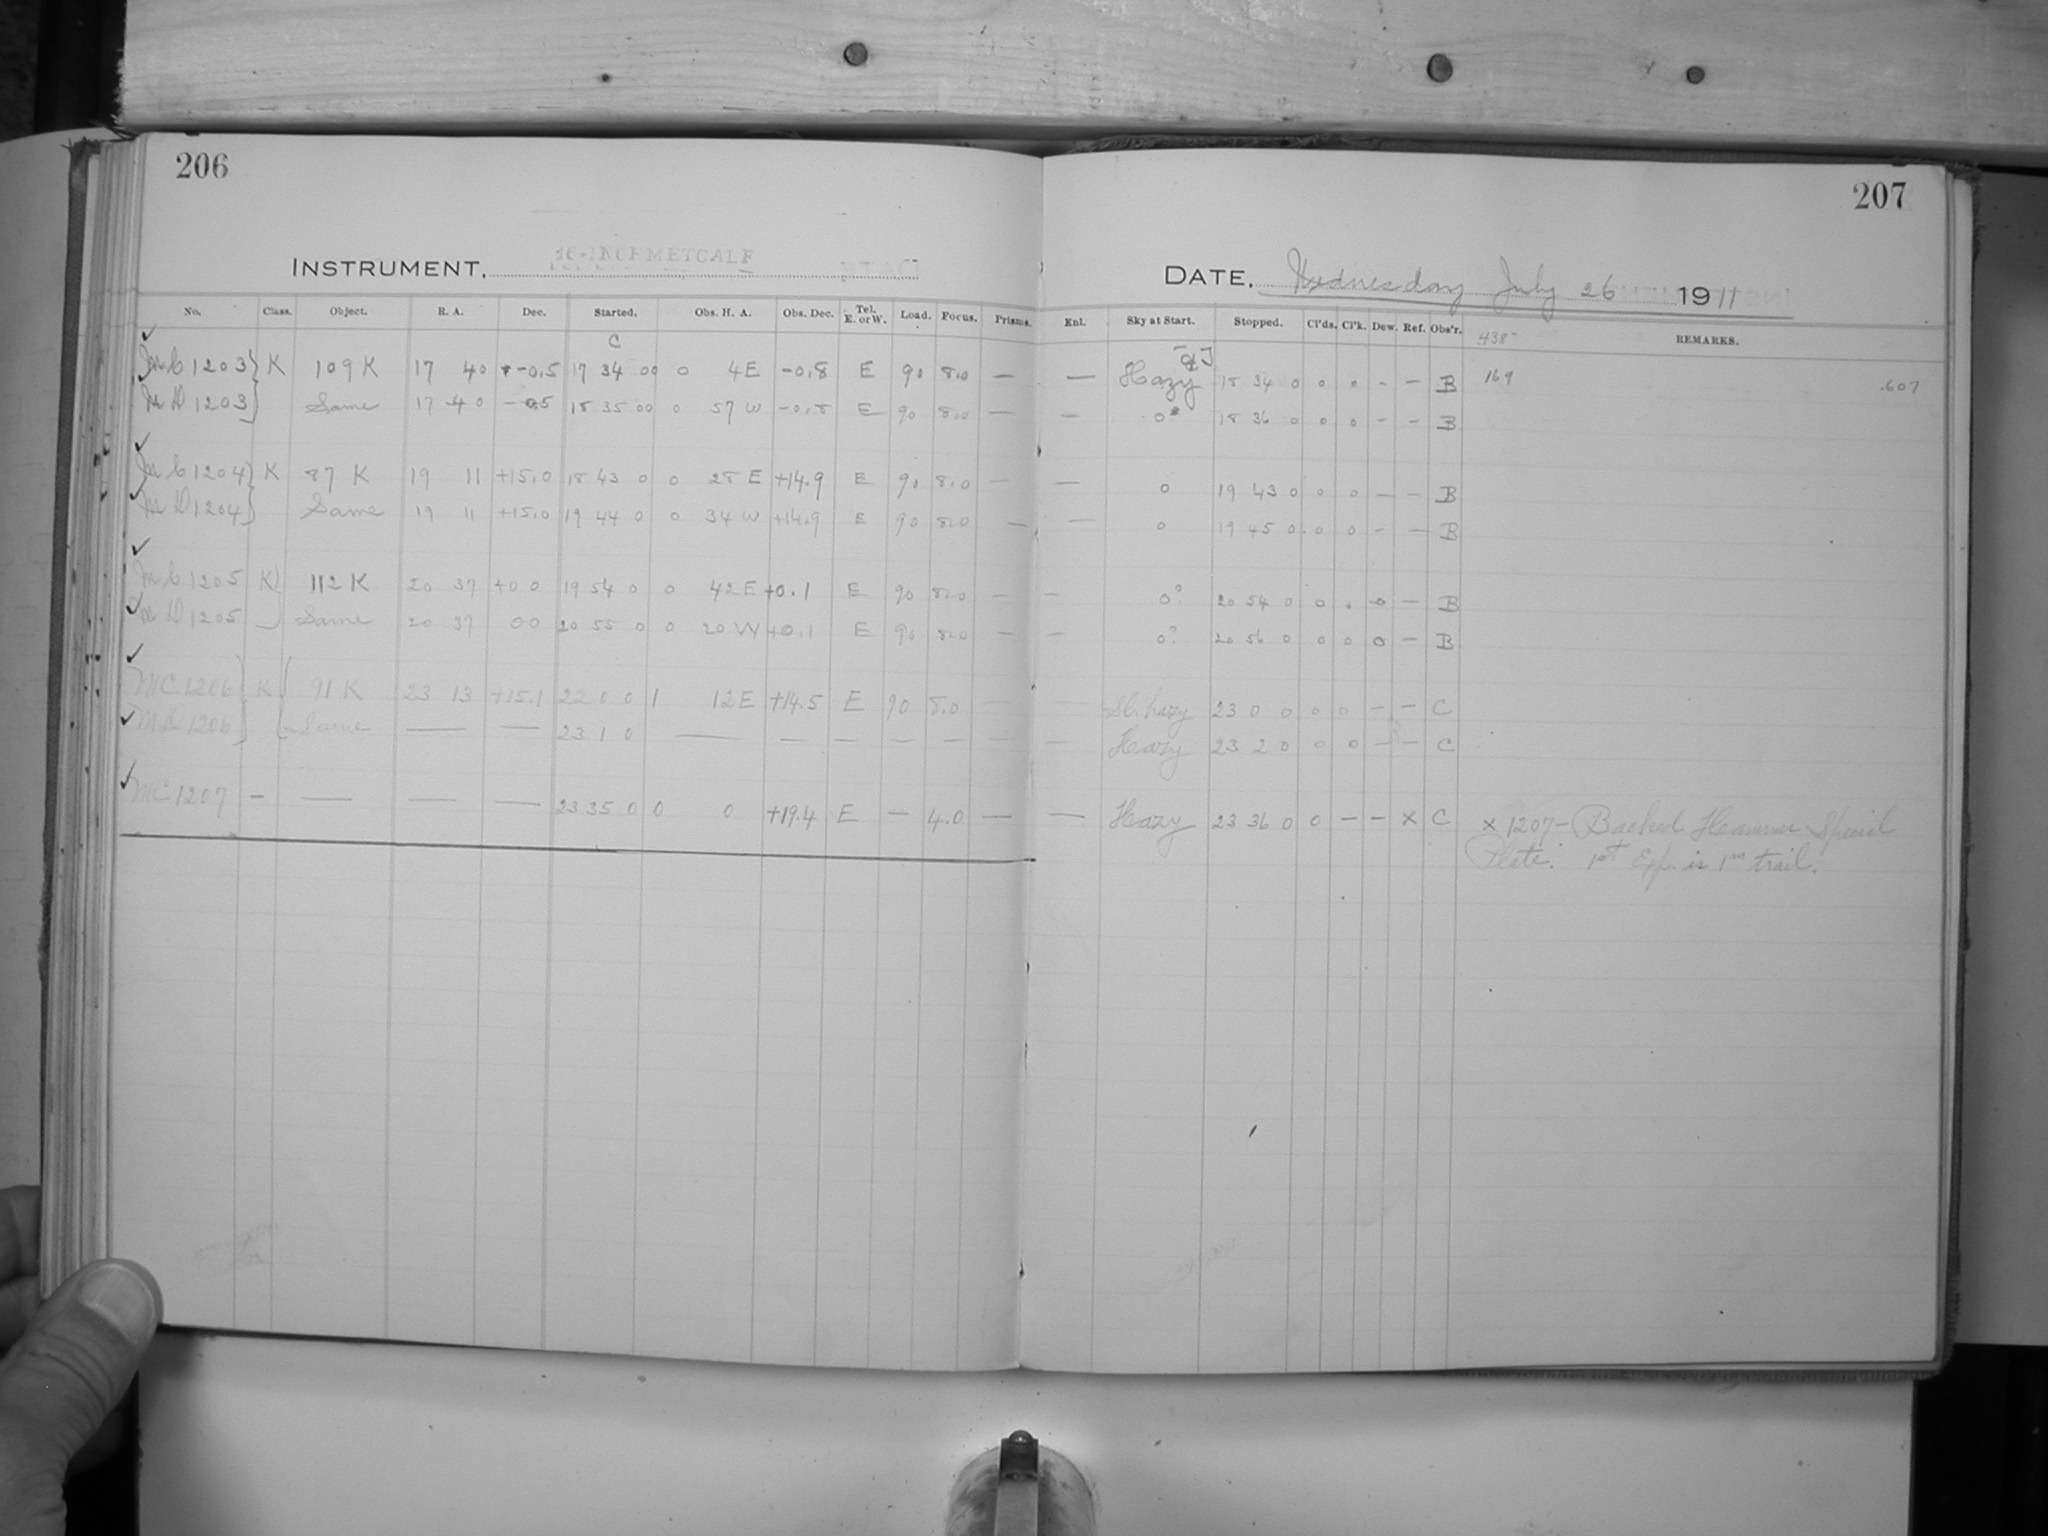 206
207
INSTRUMENT, 16-INCH METCALF
DATE, Wednesday July 26 1911
No. Class. Object. R. A. Dec. Started. Obs. H. A. Obs. Dec. Tel. E. or W. Load. Focus. Prisms. Enl. Sky at Start. Stopped. Cl'ds. Cl'k. Dew. Ref. Obs'r. REMARKS.
438
C
MC 1203 K 109 K 17 40 -0.5 17 34 00 0 4E -0.8 E 90 8.0 — — Hazy 18 34 0 0 0 - - B 169 .607
MD 1203 Same 17 40 -0.5 18 35 00 0 57 W -0.8 E 90 8.0 — — 0 18 36 0 0 0 - - B
MC 1204 K 87 K 19 11 +15.0 18 43 0 0 28 E +14.9 E 90 8.0 — — 0 19 43 0 0 0 - - B
MD 1204 Same 19 11 +15.0 19 44 0 0 34 W +14.9 E 90 8.0 — — 0 19 45 0 0 0 - - B
MC 1205 K 112 K 20 37 +0 0 19 54 0 0 42 E +0.1 E 90 8.0 — — 0? 20 54 0 0 0 0 - B
MD 1205 Same 20 37 0 0 20 55 0 0 20 W +0.1 E 90 8.0 — — 0? 20 56 0 0 0 0 - B
MC 1206 K 91 K 23 13 +15.1 22 0 0 1 12 E +14.5 E 90 8.0 — — Sl. hazy 23 0 0 0 0 - - C
MD 1206 Same — — 23 1 0 — — — — — — — Hazy 23 2 0 0 0 - - C
MC 1207 — — — — 23 35 0 0 0 +19.4 E — 4.0 — — Hazy 23 36 0 0 - - x C x 1207 - Backed Hammer Special
Plate. 1st Exp. is 1m trail.